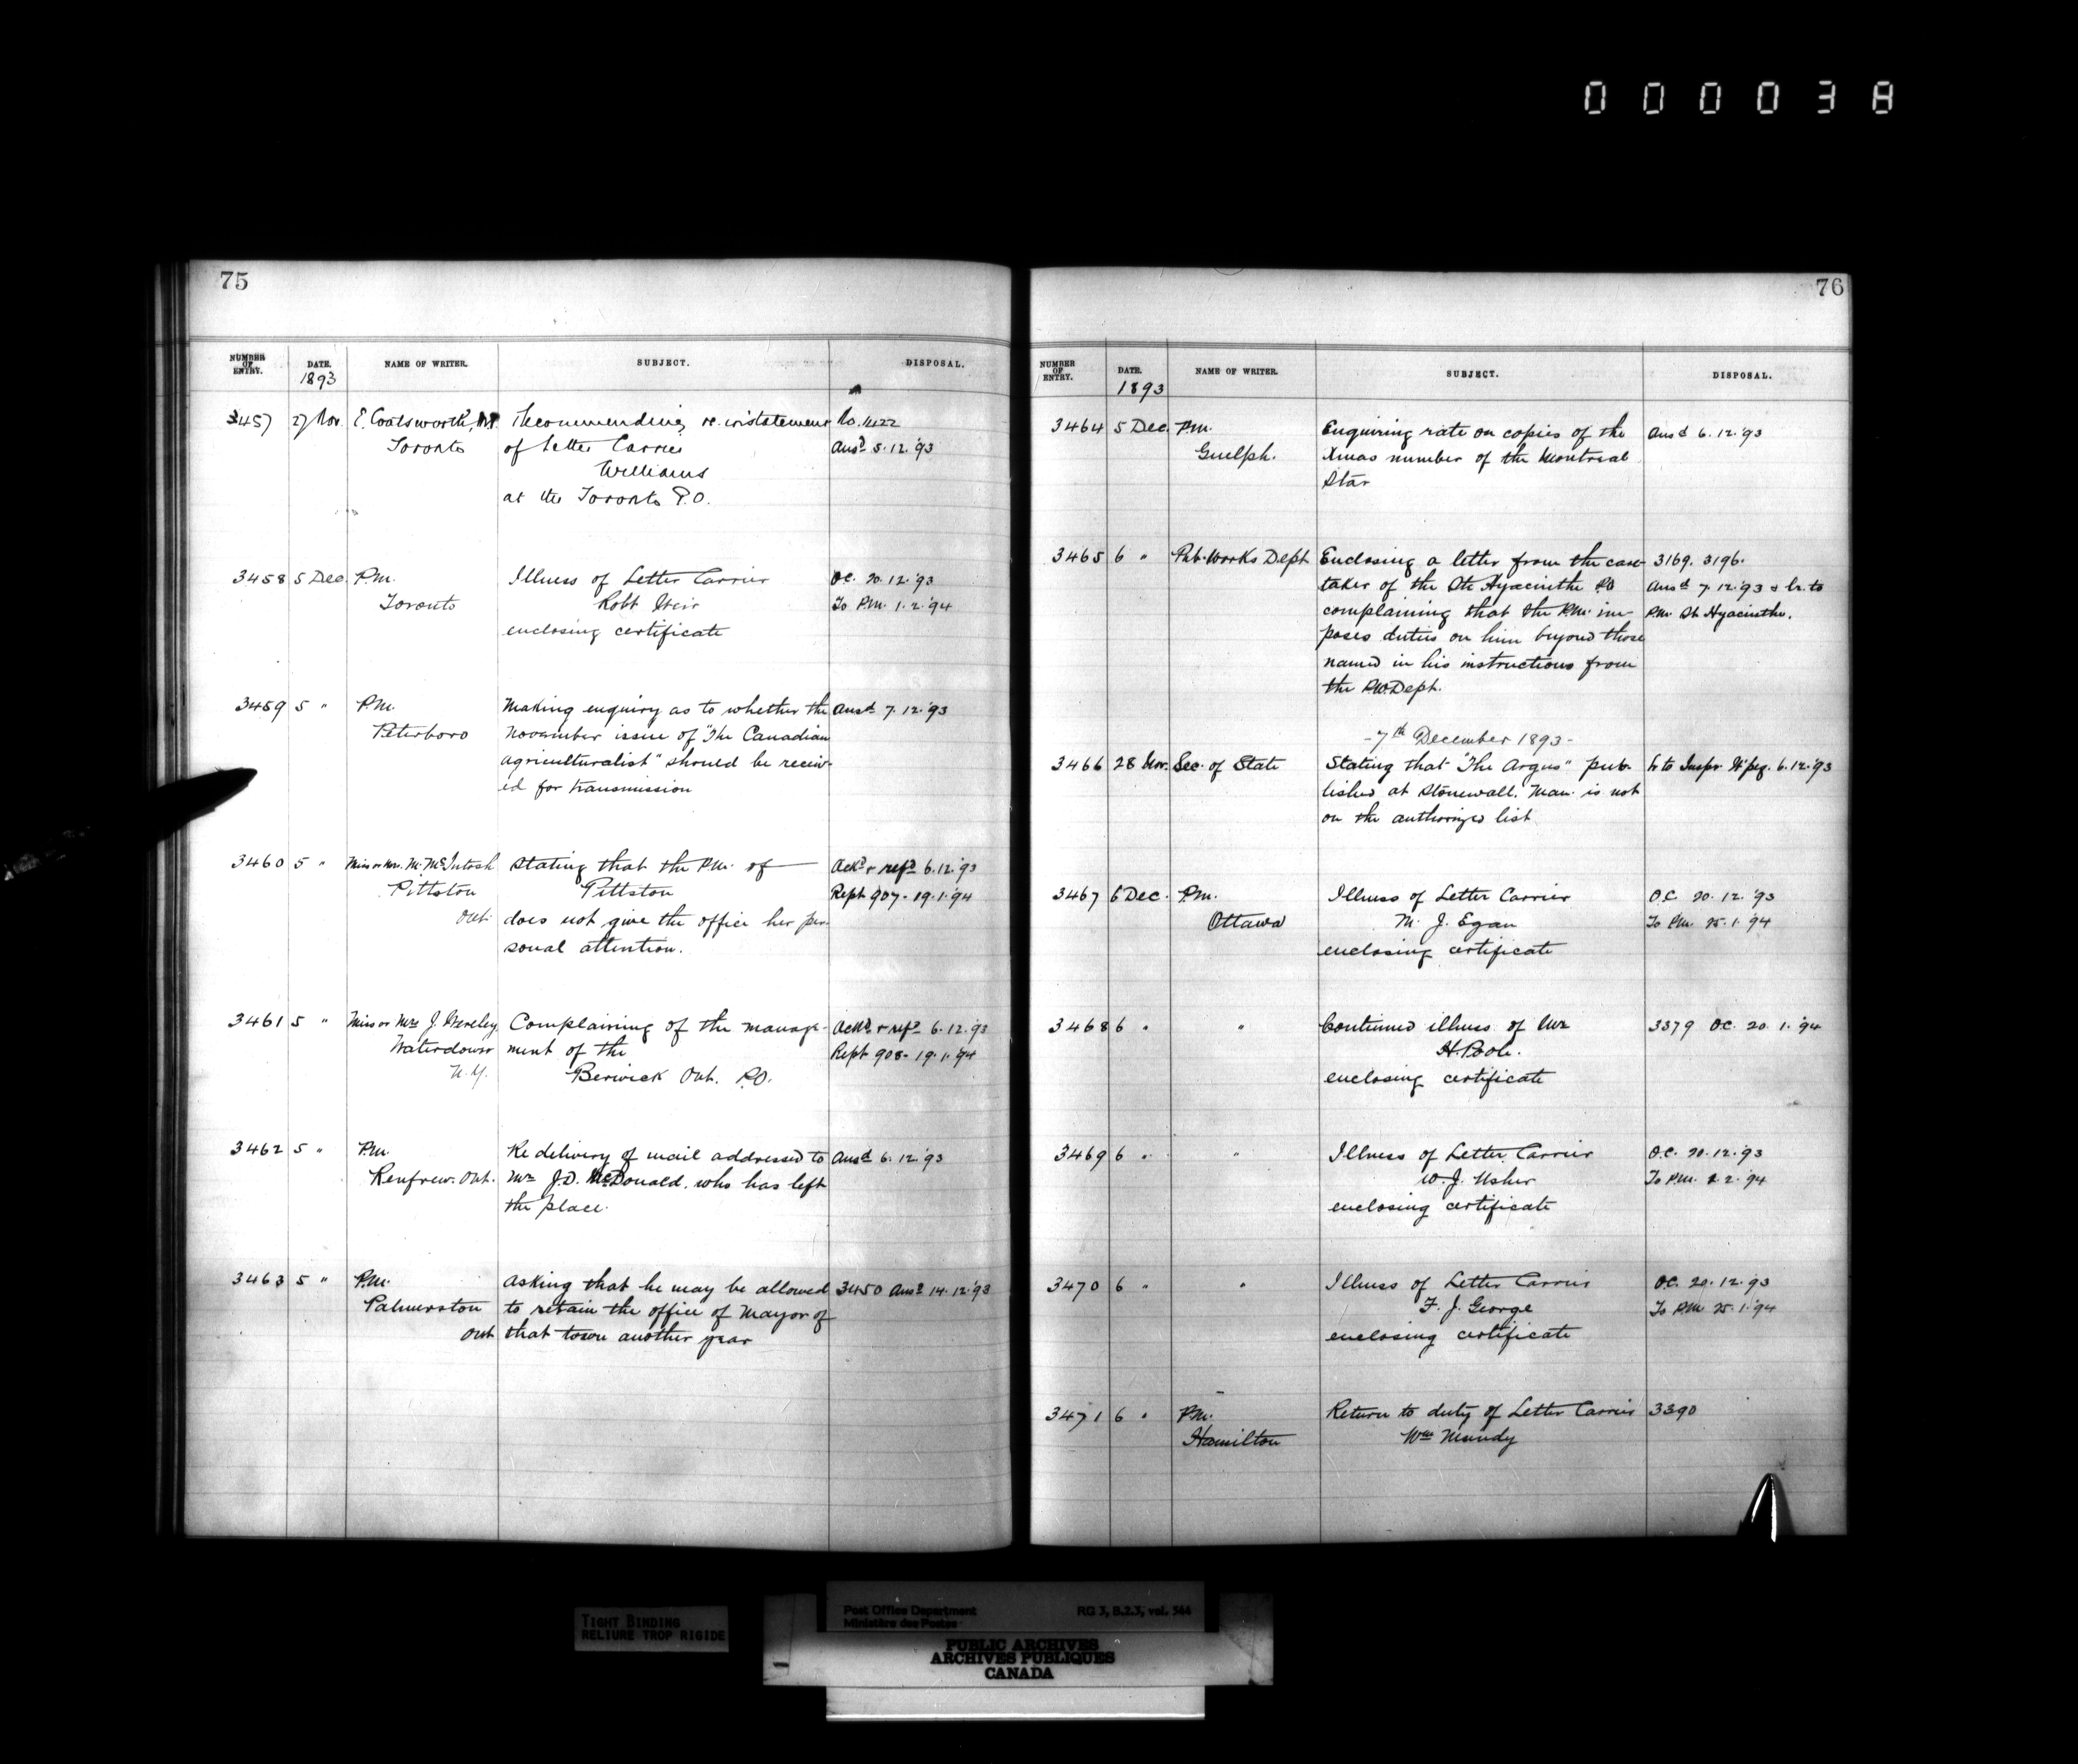 000038
75
NUMBER OF ENTRY. DATE. NAME OF WRITER. SUBJECT. DISPOSAL.
1893
3457 27 Nov. E. Coatsworth, M.P. Recommending re-instatement No. 1122
Toronto of Letter Carrier Ansd 5.12.'93
Williams
at the Toronto P.O.
3458 5 Dec. P.M. Illness of Letter Carrier O.C. 20.12.'93
Toronto Robt Weir To P.M. 1.2.'94
enclosing certificate
3459 5 " P.M. Making enquiry as to whether the Ansd 7.12.'93
Peterboro November issue of "The Canadian
Agriculturalist" should be receiv-
ed for transmission
3460 5 " Miss or Mrs. M. McIntosh Stating that the P.M. of Ackd & refd 6.12.'93
Pittston Pittston Rept 907 - 19.1.'94
Ont. does not give the office her per-
sonal attention.
3461 5 " Miss or Mrs J. Complaining of the manage- Ackd & refd 6.12.'93
Waterdown ment of the Rept 908 - 19.1.'94
N.Y. Berwick Ont. P.O.
3462 5 " P.M. Re delivery of mail addressed to Ansd 6.12.'93
Renfrew. Ont. Mr J.D. McDonald. who has left
the place.
3463 5 " P.M. Asking that he may be allowed 3450 Ansd 14.12.'93
Palmerston to retain the office of Mayor of
Ont that town another year
76
NUMBER OF ENTRY. DATE. NAME OF WRITER. SUBJECT. DISPOSAL.
1893
3464 5 Dec. P.M. Enquiring rate on copies of the Ansd 6.12.'93
Guelph. Xmas number of the Montreal
Star
3465 6 " Pub. Works Dept Enclosing a letter from the care- 3169. 3196.
taker of the Ste Hyacinthe P.O Ansd 7.12.'93 & lr. to
complaining that the P.M. im- P.M. St Hyacinthe.
poses duties on him beyond those
named in his instructions from
the P.W. Dept.
- 7th December 1893 -
3466 28 Nov. Sec. of State Stating that "The Argus" pub- lr to Inspr W'peg. 6.12.'93
lished at Stonewall. Man. is not
on the authorized list
3467 6 Dec. P.M. Illness of Letter Carrier O.C. 20.12.'93
Ottawa M. J. Egan To P.M. 25.1.'94
enclosing certificate
3468 6 " " Continued illness of Mr 3379 O.C. 20.1.'94
H. Poole.
enclosing certificate
3469 6 " " Illness of Letter Carrier O.C. 20.12.'93
W. J. Usher To P.M. 2.2.'94
enclosing certificate
3470 6 " " Illness of Letter Carrier O.C. 20.12.'93
F. J. George To P.M. 25.1.'94
enclosing certificate
3471 6 " P.M. Return to duty of Letter Carrier 3390
Hamilton Wm Mundy
TIGHT BINDING
RELIURE TROP RIGIDE
Post Office Department RG 3, B.2.3, vol. 544
Ministère des Postes
PUBLIC ARCHIVES
ARCHIVES PUBLIQUES
CANADA